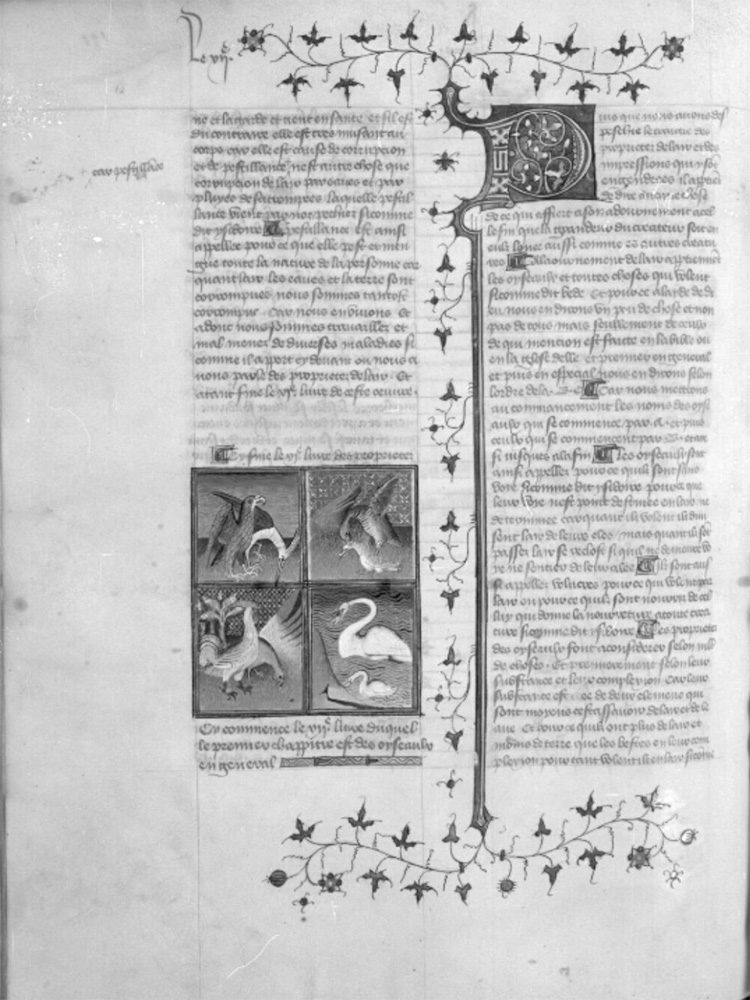 Le vij.e
car pestillance
ne et la garde et tient en sante et sil est
du contraire elle est tres nuisant au
corps car elle est cause de corrupcion
et de pestillance nest autre chose que
corrupcion de lair par eaues et par
lance vient pour nos pechiez si comme
dit ysidoire Et pestillance est ainsi
appellee pour ce que elle
toute la nature de la personne car
quant lair les eaues et la terre sont
corrompues nous sommes tantost
corrompus Car nous en vivons Et
adonc nous sommes travaillez et
mal menez de diverses maladies si
comme il appert cy devant ou nous a
vons parle des proprietez de lair Et
atant fine le vj.e livre de ceste oeuvre
Cy fine le vj.e livre des proprietez
Cy commence le vij.e livre duquel
le premier chappitre est des oyseaulx
en general
Puis que nous avons des
proprietez de lair et des
impressions qui y sont
engendrees il
de dire
de ce qui affiert a son adournement a cel
le fin que la grandeur du createur soit en
aussi comme es autres creatu
res A laournement de lair appartiennent
les oyseaulx et toutes choses qui volent
si comme dit bede Et pour ce a layde de di
eu nous en dirons un peu de chose et non
pas de tous mais seullement de ceulx
de qui mencion est faicte en la bible ou
en la glose delle et premier en general
et puis en especial nous en dirons selon
lordre de la b c Car nous mettrons
au commancement les noms des oyse
aulx qui se commence par a et puis
ceulx qui se commencent par b et ain
si jusques a la fin Les oyseaulx sont
ainsi appellez pour ce quilz sont sans
voye si comme dit ysidoire pour ce que
leur voye nest point en lair ne
car quant ilz volent ilz
lair de leurs eles mais quant ilz sont
passez lair se reclost si quil ne demeure
Ilz sont aus
si appellez volucres pour ce quilz volent par
lair ou pour ce quilz sont nourriz de cel
luy qui donne la nourreture a toute crea
ture si comme dit ysidoire Les proprietez
des oyseaulx sont a considerer selon
de choses Et premierement selon leur
substance et leur complexion Car leur
substance est de deux elemens qui
sont moyens cestassavoir de lair et de le
aue Et pour ce quilz ont plus de lair et
moins de terre que les bestes en leur com
plexion pour tant volent ilz en lair si comme